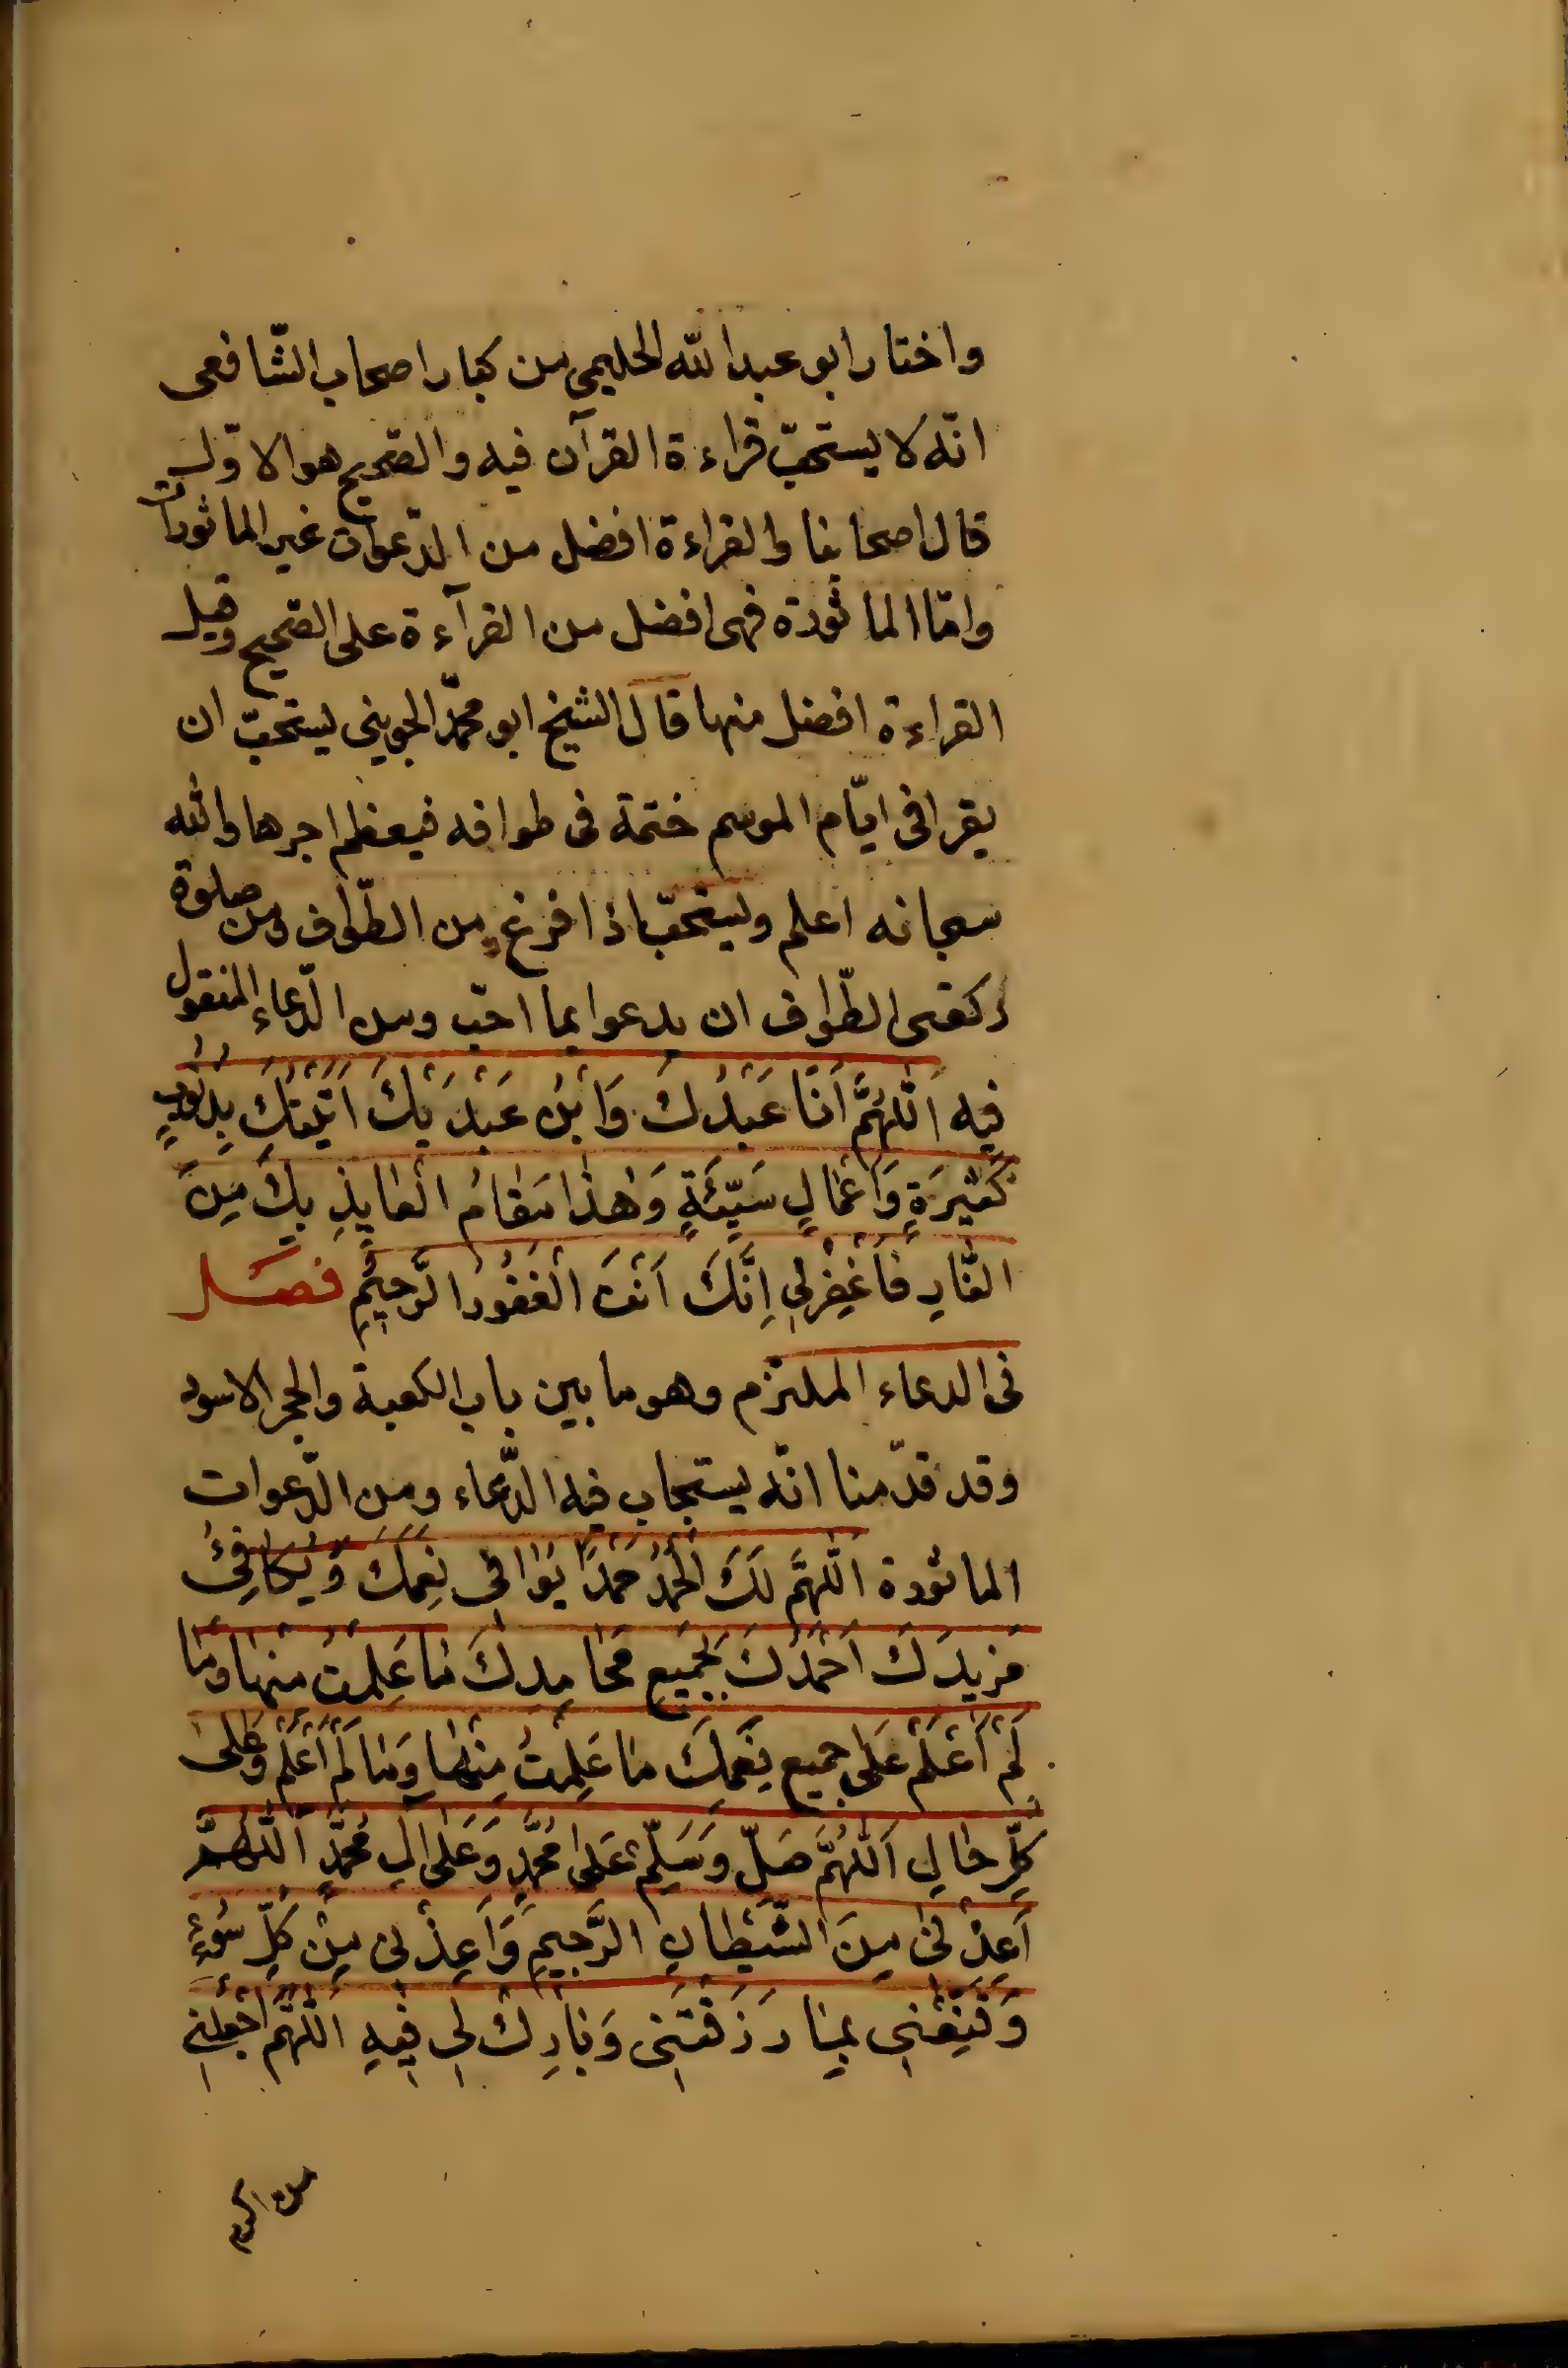 واختار ابو عبد الله الحليمى من كبار اصحاب الشّافعى
انّه لا يستحبّ قراءة القرآن فيه والصّحيح هو الاوّل
قال اصحابنا والقراءة افضل من الدّعوات غير الماثورات
وامّا الماثورة فهى افضل من القرآءة على الصّحيح وقيل
القراءة افضل منها قال الشيخ ابو محمّد الجوينى يستحبّ ان
يقرا فى ايّام الموسم ختمة فى طوافه فيعظم اجرها والله
سبحانه اعلم ويستحبّ اذا فرغ من الطّواف ومن صلوة
ركعتى الطّواف ان يدعوا بما احبّ ومن الدّعاء المنقول
فيه اَللّٰهُمَّ اَنَا عَبْدُكَ وَابْنُ عَبْدَيْكَ اَتَيْتُكَ بِذُنُوبٍ
كَثِيرَةٍ وَاَعْمَالٍ سَيِّئَةٍ وَهٰذَا مَقَامُ الْعَايِذِ بِكَ مِنَ
النَّارِ فَاَغْفِرْ لِى اِنَّكَ اَنْتَ الْغَفُورُ الرَّحِيْمِ فصل
فى الدعاء الملتزم وهو ما بين باب الكعبة والحجر الاسود
وقد قدّمنا انّه يستجاب فيه الدّعاء ومن الدّعوات
الماثورة اَللّٰهُمَّ لَكَ الْحَمْدُ حَمْدًا يُوَافِى نِعَمَكَ وَيُكَافِئُ
مَزِيدَكَ اَحْمَدُكَ بِجَمِيعِ مَحَامِدِكَ مَا عَلِمْتُ مِنْهَا وَمَا
لَمْ اَعْلَمْ عَلَى جميع نِعَمِكَ مَا عَلِمْتُ مِنْهَا وَمَا لَمْ اَعْلَمْ وَعَلٰى
كُلِّ حَالٍ اَللّٰهُمَّ صَلِّ وَسَلِّمْ عَلٰى مُحَمَّدٍ وَعَلٰى اٰلِ مُحَمَّدٍ اَللّٰهُمَّ
اَعِذْنِى مِنَ الشَّيْطَانِ الرَّجِيمِ وَاَعِذْنِى مِنْ كُلِّ سُوْءٍ
وَقَنِّعْنِى بِمَا رَزَقْتَنِى وَبَارِكْ لِى فِيهِ اَللّٰهُمَّ اجْعَلْنِى
من اكرم